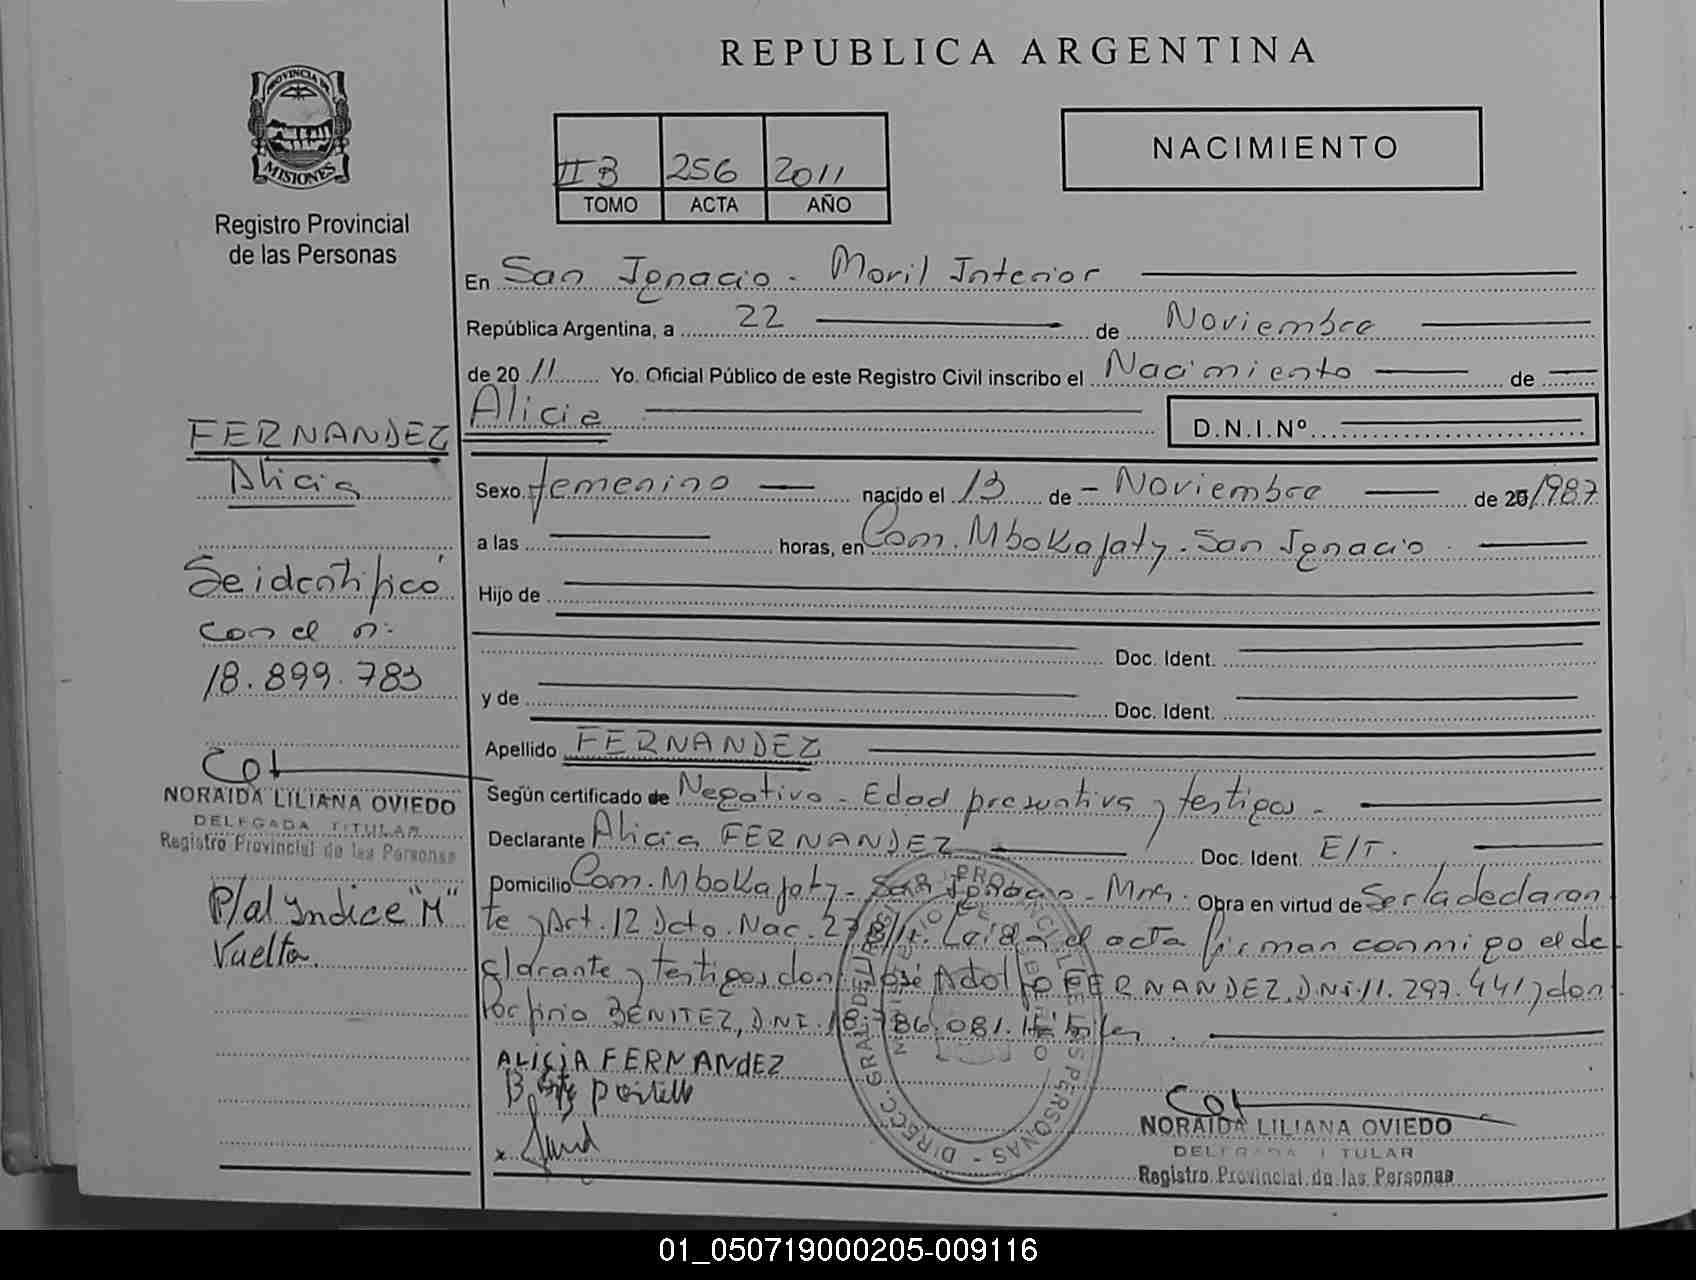 REPUBLICA ARGENTINA
PROVINCIA DE
MISIONES
Registro Provincial
de las Personas
NACIMIENTO
II B 256 2011
TOMO ACTA AÑO
En San Ignacio - Moril Interior
República Argentina, a 22 de Noviembre
de 20 11 Yo. Oficial Público de este Registro Civil inscribo el Nacimiento de
Alicia D.N.I.Nº
FERNANDEZ
Alicia
Se identificó
con el n:
18.899.783
NORAIDA LILIANA OVIEDO
DELEGADA TITULAR
Registro Provincial de las Personas
P/al Yndice "M"
Vuelta.
Sexo. femenino nacido el 13 de - Noviembre de 20 1987
a las horas, en Com. Mbokajaty - San Ignacio.
Hijo de
Doc. Ident.
y de Doc. Ident.
Apellido FERNANDEZ
Según certificado de Negativo - Edad presuntiva y testigos -
Declarante Alicia FERNANDEZ Doc. Ident. E/T.
Domicilio Com. Mbokajaty - San Ignacio - Mns. Obra en virtud de Ser la declaran
te y Art. 12 Dcto. Nac. Leída el acta firman conmigo el de
clarante y testigos don José Adolfo FERNANDEZ, DNI. 11.297.441 y don
Porfirio BENITEZ, D.N.I. 18.786.081. Hábiles.
ALICIA FERNANDEZ
NORAIDA LILIANA OVIEDO
DELEGADA TITULAR
Registro Provincial de las Personas
01_050719000205-009116